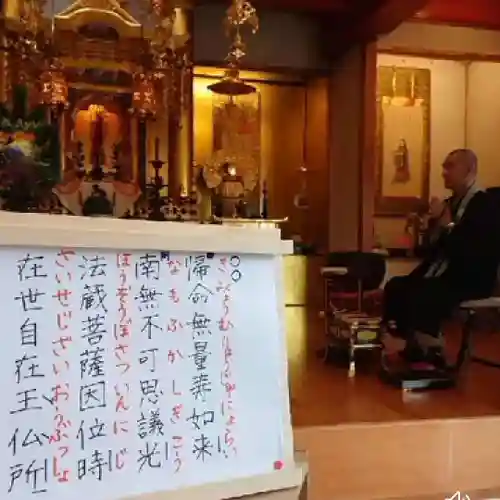 きみょうむりょうじゅにょらい
帰命無量寿如来
なもふかしぎこう
南無不可思議光
ほうぞうぼさついんにじ
法蔵菩薩因位時
ざいせじざいおうぶっしょ
在世自在王仏所